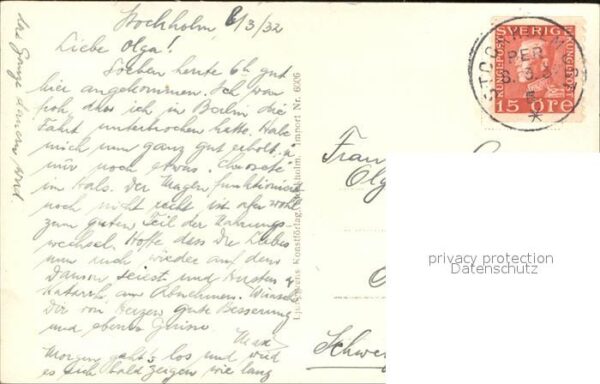 Stockholm, 8/3/32
Liebe Olga!
Soeben heute 6h gut
hier angekommen. Ich war
froh dass ich in Berlin die
Fahrt unterbrochen hatte. Habe
mich nun ganz gut erholt, u
nur noch etwas
im Hals. Der Magen funktioniert
noch nicht recht ist aber wohl
zum guten Teil der Nahrungs-
wechsel. Hoffe dass Du Liebes
nun auch wieder auf dem
Damm seiest und Husten u
Katarrh am Abnehmen. Wünsche
Dir von Herzen gute Besserung
und ebenso
Max
Morgen geht's los und wird
es sich bald zeigen wie lang
Ljunggrens Konstförlag, Stockholm, Import Nr. 6006
SVERIGE
15 ÖRE
STOCKHOLM
PER
8.3.32
Frau
Olg
Schwe
privacy protection
Datenschutz